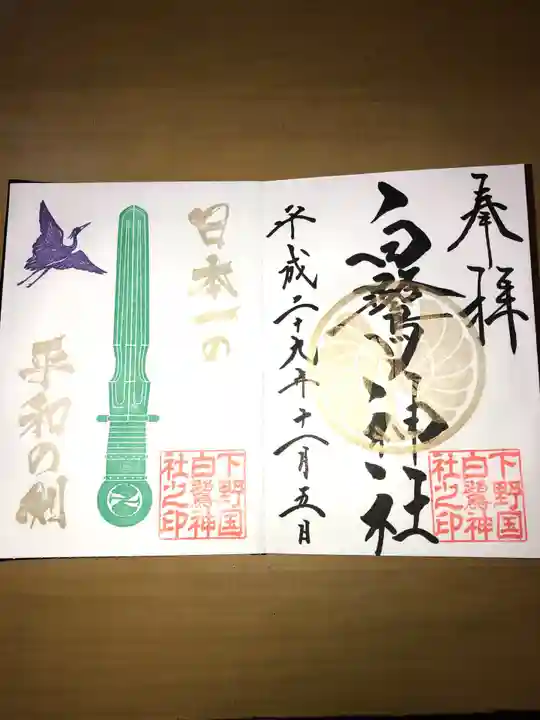 奉拝
白鷺神社
下野国
白鷺神
社之印
平成二十九年十一月五日
日本一の
平和の剣
下野国
白鷺神
社之印